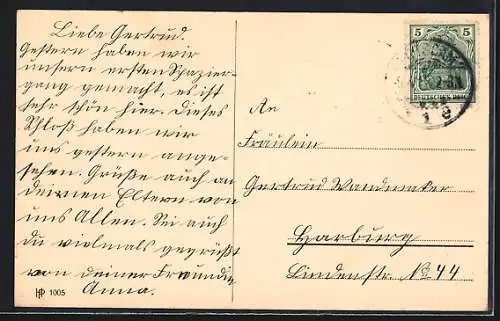 Liebe Gertrud.
Gestern haben wir
unsern ersten Spazier-
gang gemacht, es ist
sehr schön hier. Dieses
Schloß haben wir
uns gestern ange-
sehen. Grüße auch an
deinen Eltern von
uns Allen. Sei auch
du vielmals gegrüßt
von deiner Freundin
Anna.
HP 1005
5 5
DEUTSCHES REICH
An
Fräulein
Gertrud
Harburg
Lindenstr. No 44